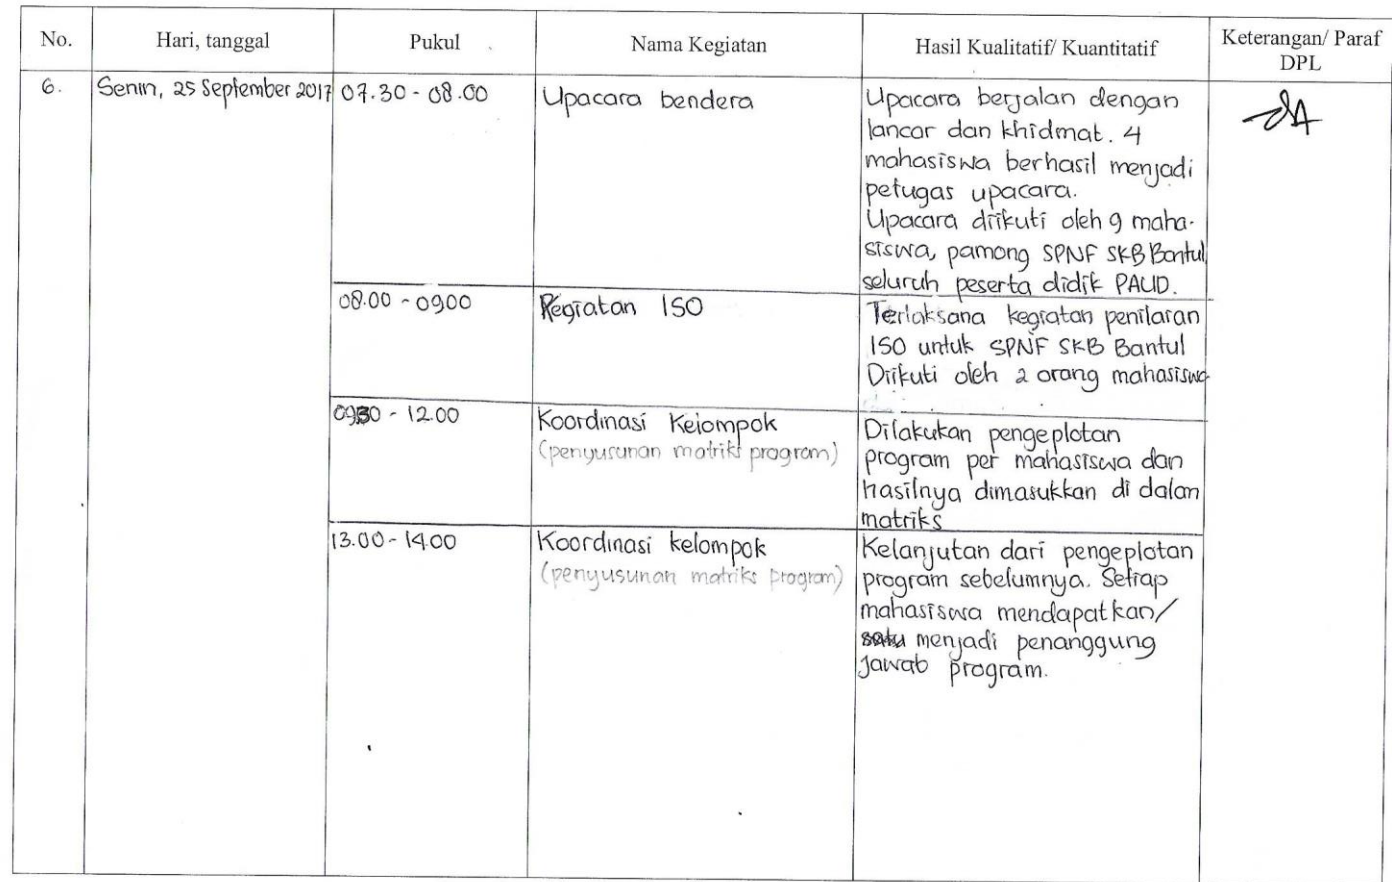 No.
Hari, tanggal
Pukul
Nama Kegiatan
Hasil Kualitatif/ Kuantitatif
Keterangan/ Paraf
DPL
6.
Senin, 25 September 2017
07.30 - 08.00
Upacara bendera
Upacara berjalan dengan
lancar dan khidmat. 4
mahasiswa berhasil menjadi
petugas upacara.
Upacara diikuti oleh 9 maha-
siswa, pamong SPNF SKB Bantul
seluruh peserta didik PAUD.
08.00 - 0900
Kegiatan ISO
Terlaksana kegiatan penilaian
ISO untuk SPNF SKB Bantul
Diikuti oleh 2 orang mahasiswa
0930 - 12.00
Koordinasi Kelompok
(penyusunan matriks program)
Dilakukan pengeplotan
program per mahasiswa dan
hasilnya dimasukkan di dalam
matriks
13.00 - 14.00
Koordinasi kelompok
(penyusunan matriks program)
Kelanjutan dari pengeplotan
program sebelumnya. Setiap
mahasiswa mendapatkan/
menjadi penanggung
jawab program.